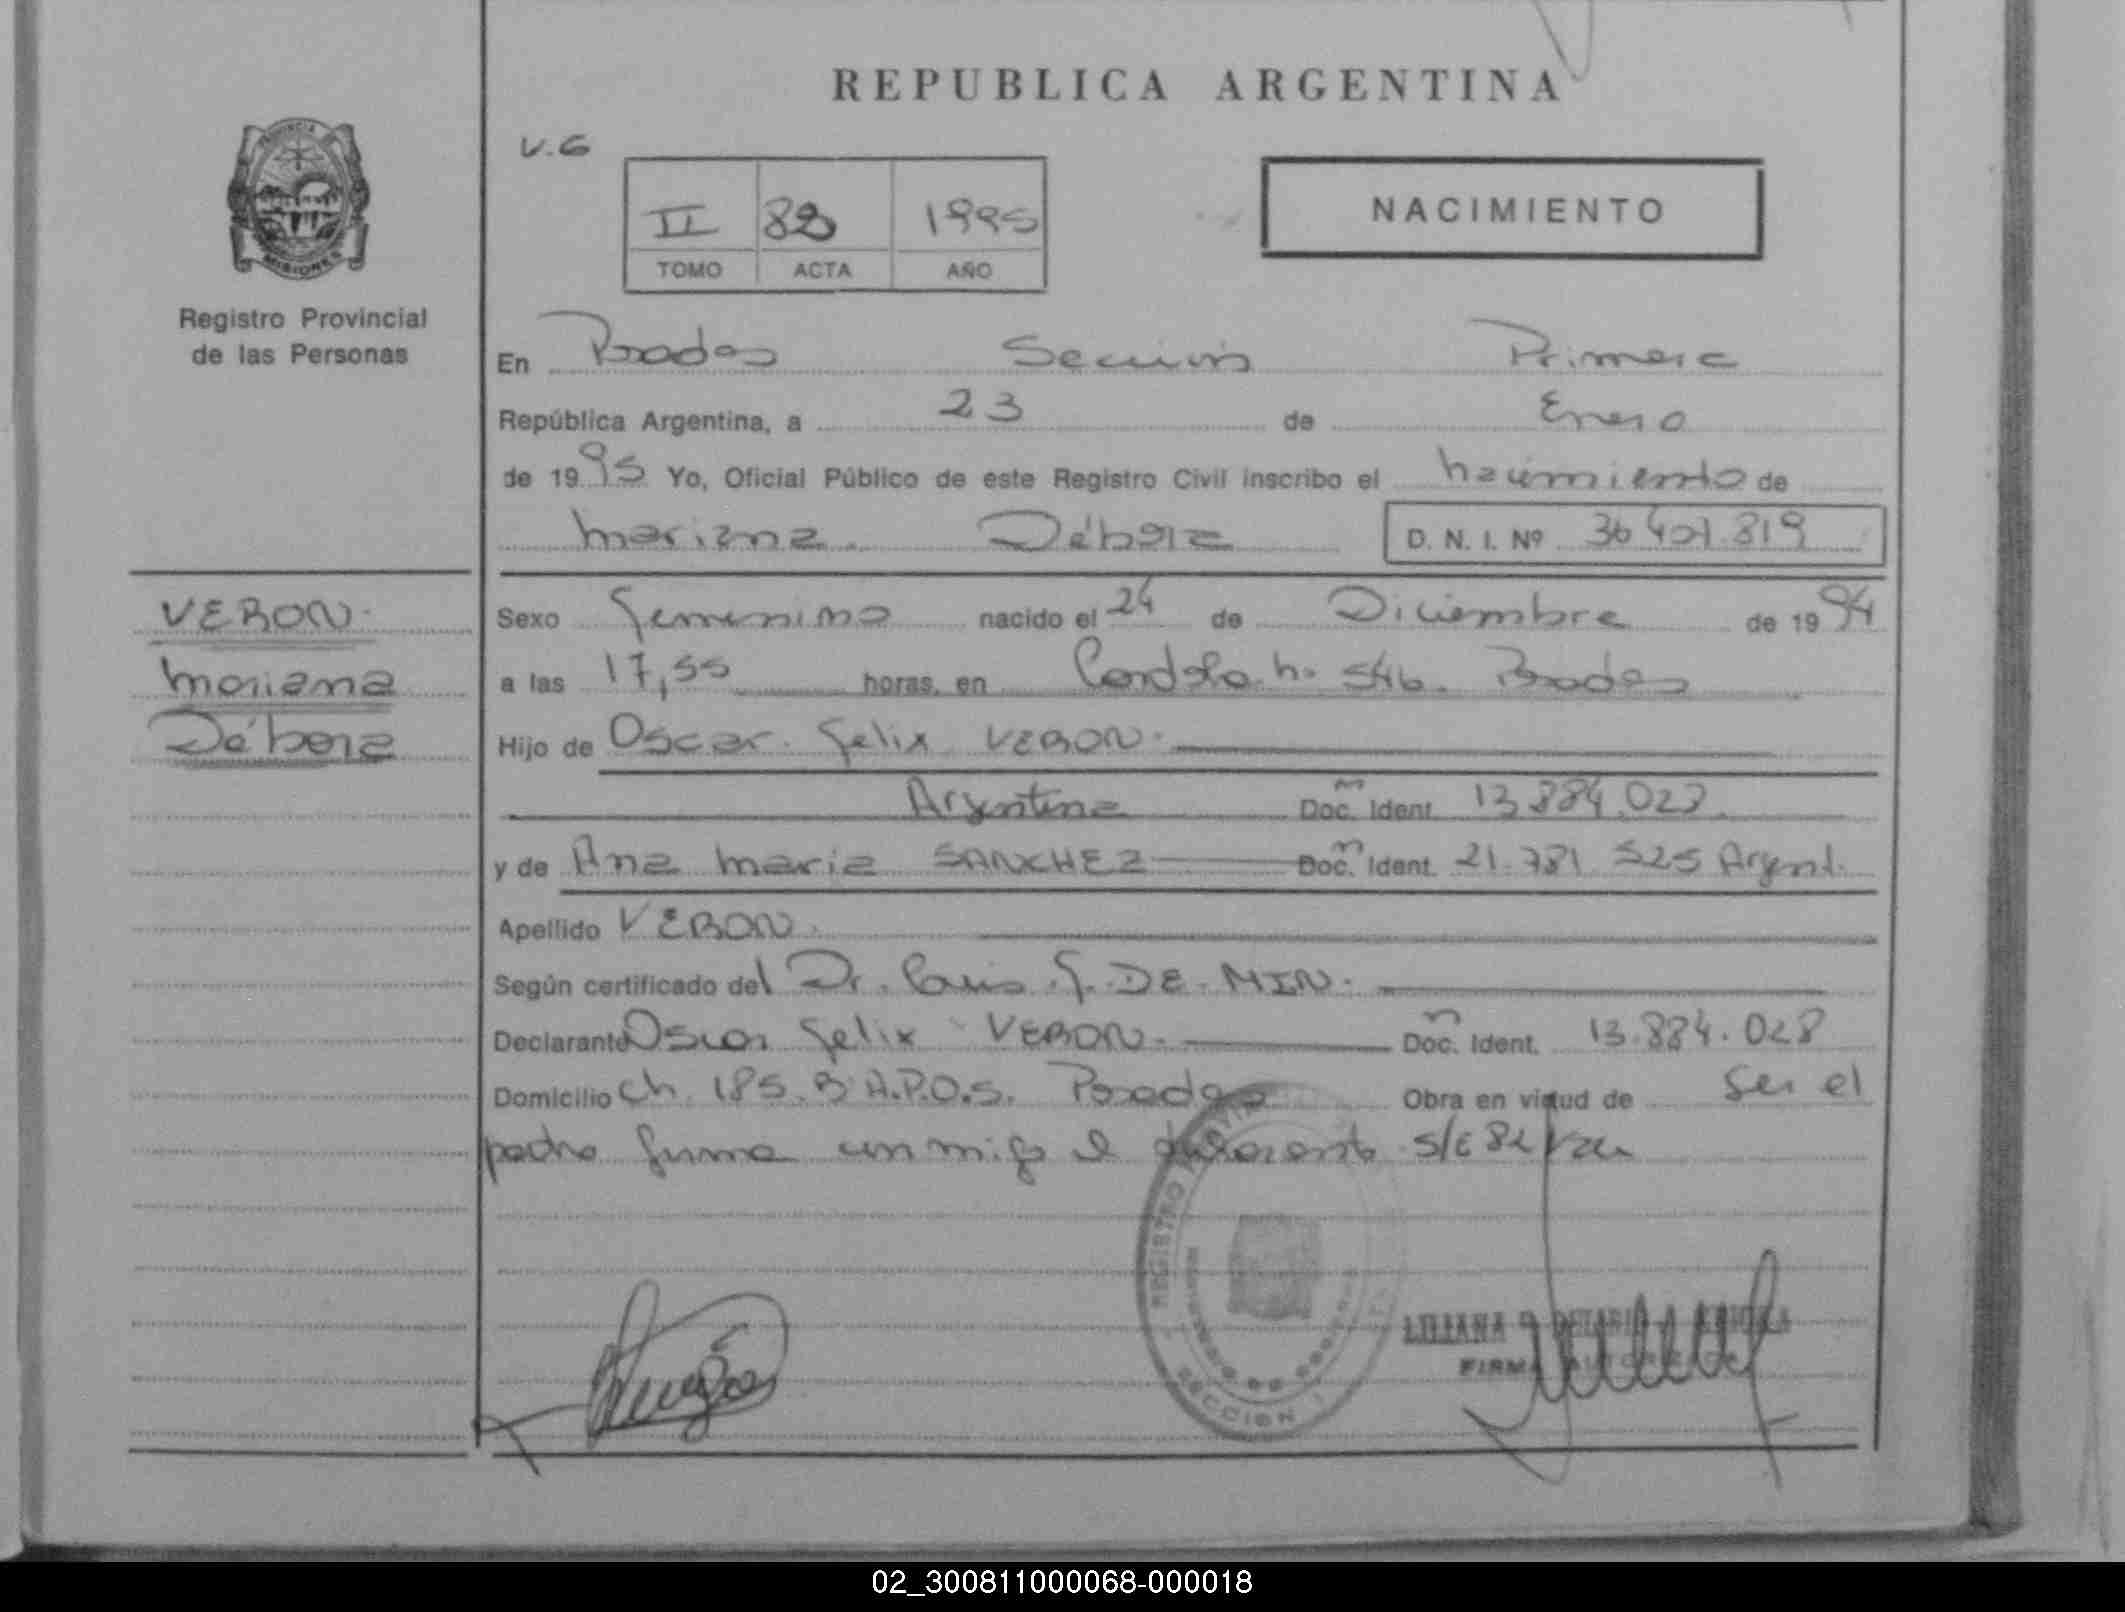 REPUBLICA ARGENTINA
V.G
II 82 1995
TOMO ACTA AÑO
NACIMIENTO
PROVINCIA
MISIONES
Registro Provincial
de las Personas
En Posadas Sección Primera
República Argentina, a 23 de Enero
de 1995 Yo, Oficial Público de este Registro Civil inscribo el nacimiento de
Mariana Débora D. N. I. Nº 36.407.819
VERON
Mariana
Débora
Sexo femenino nacido el 24 de Diciembre de 1994
a las 17,55 horas, en Cordoba nº 546. Posadas
Hijo de Oscar Felix VERON
Argentina Doc. Ident. 13.884.028
y de Ana Maria SANCHEZ Doc. Ident. 21.781.525 Argent.
Apellido VERON
Según certificado del Dr. Luis F. DE MIN.
Declarante Oscar Felix VERON Doc. Ident. 13.884.028
Domicilio Ch. 185. Bº A.P.O.S. Posadas Obra en virtud de ser el
padre firma conmigo el declarante
REGISTRO
SECCION 1
LILIANA
FIRMA AUTORIZADA
02_300811000068-000018